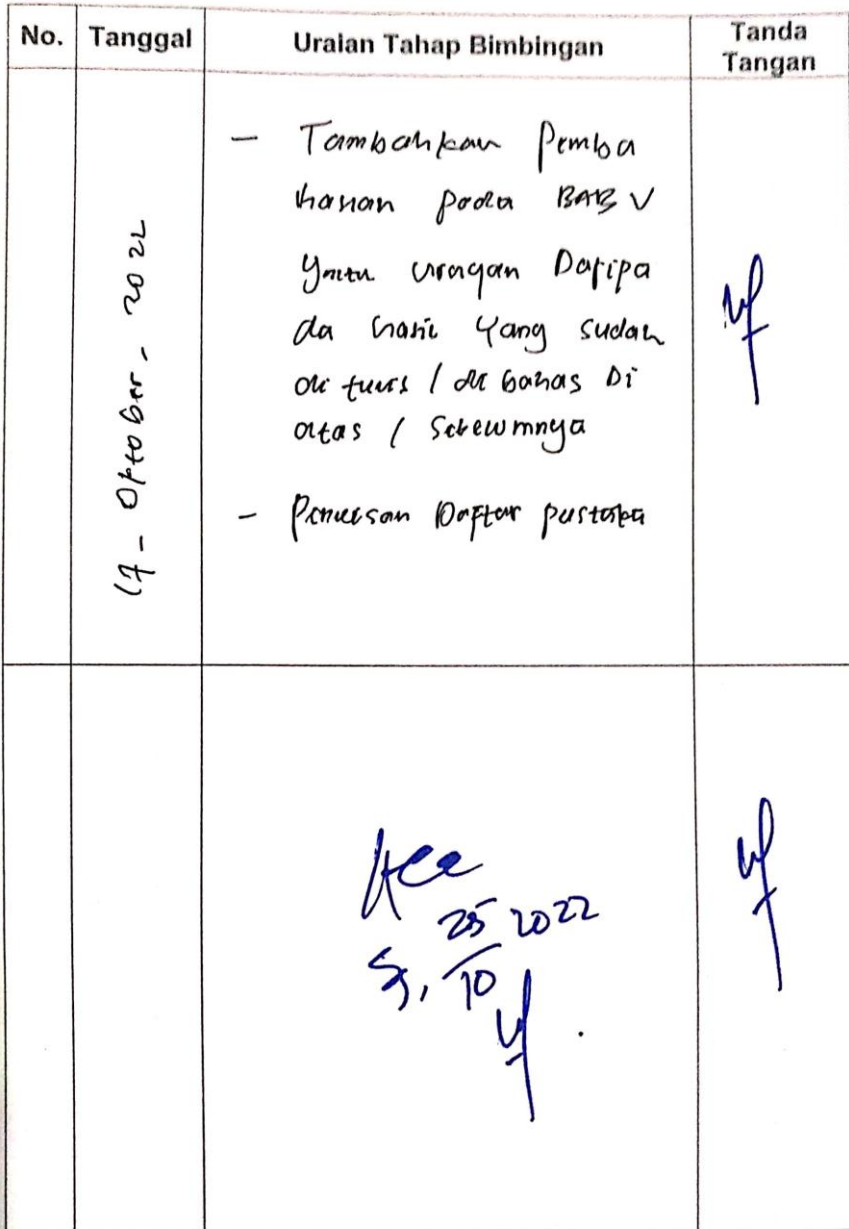 No. Tanggal Uraian Tahap Bimbingan Tanda Tangan
17 - Oktober - 2022
- Tambahkan Pemba
hasan pada BAB V
yaitu Daripa
da hasil yang sudah
di tulis / di bahas Di
atas / Sebelumnya
- Penulisan Daftar pustaka
Acc
25 2022
10